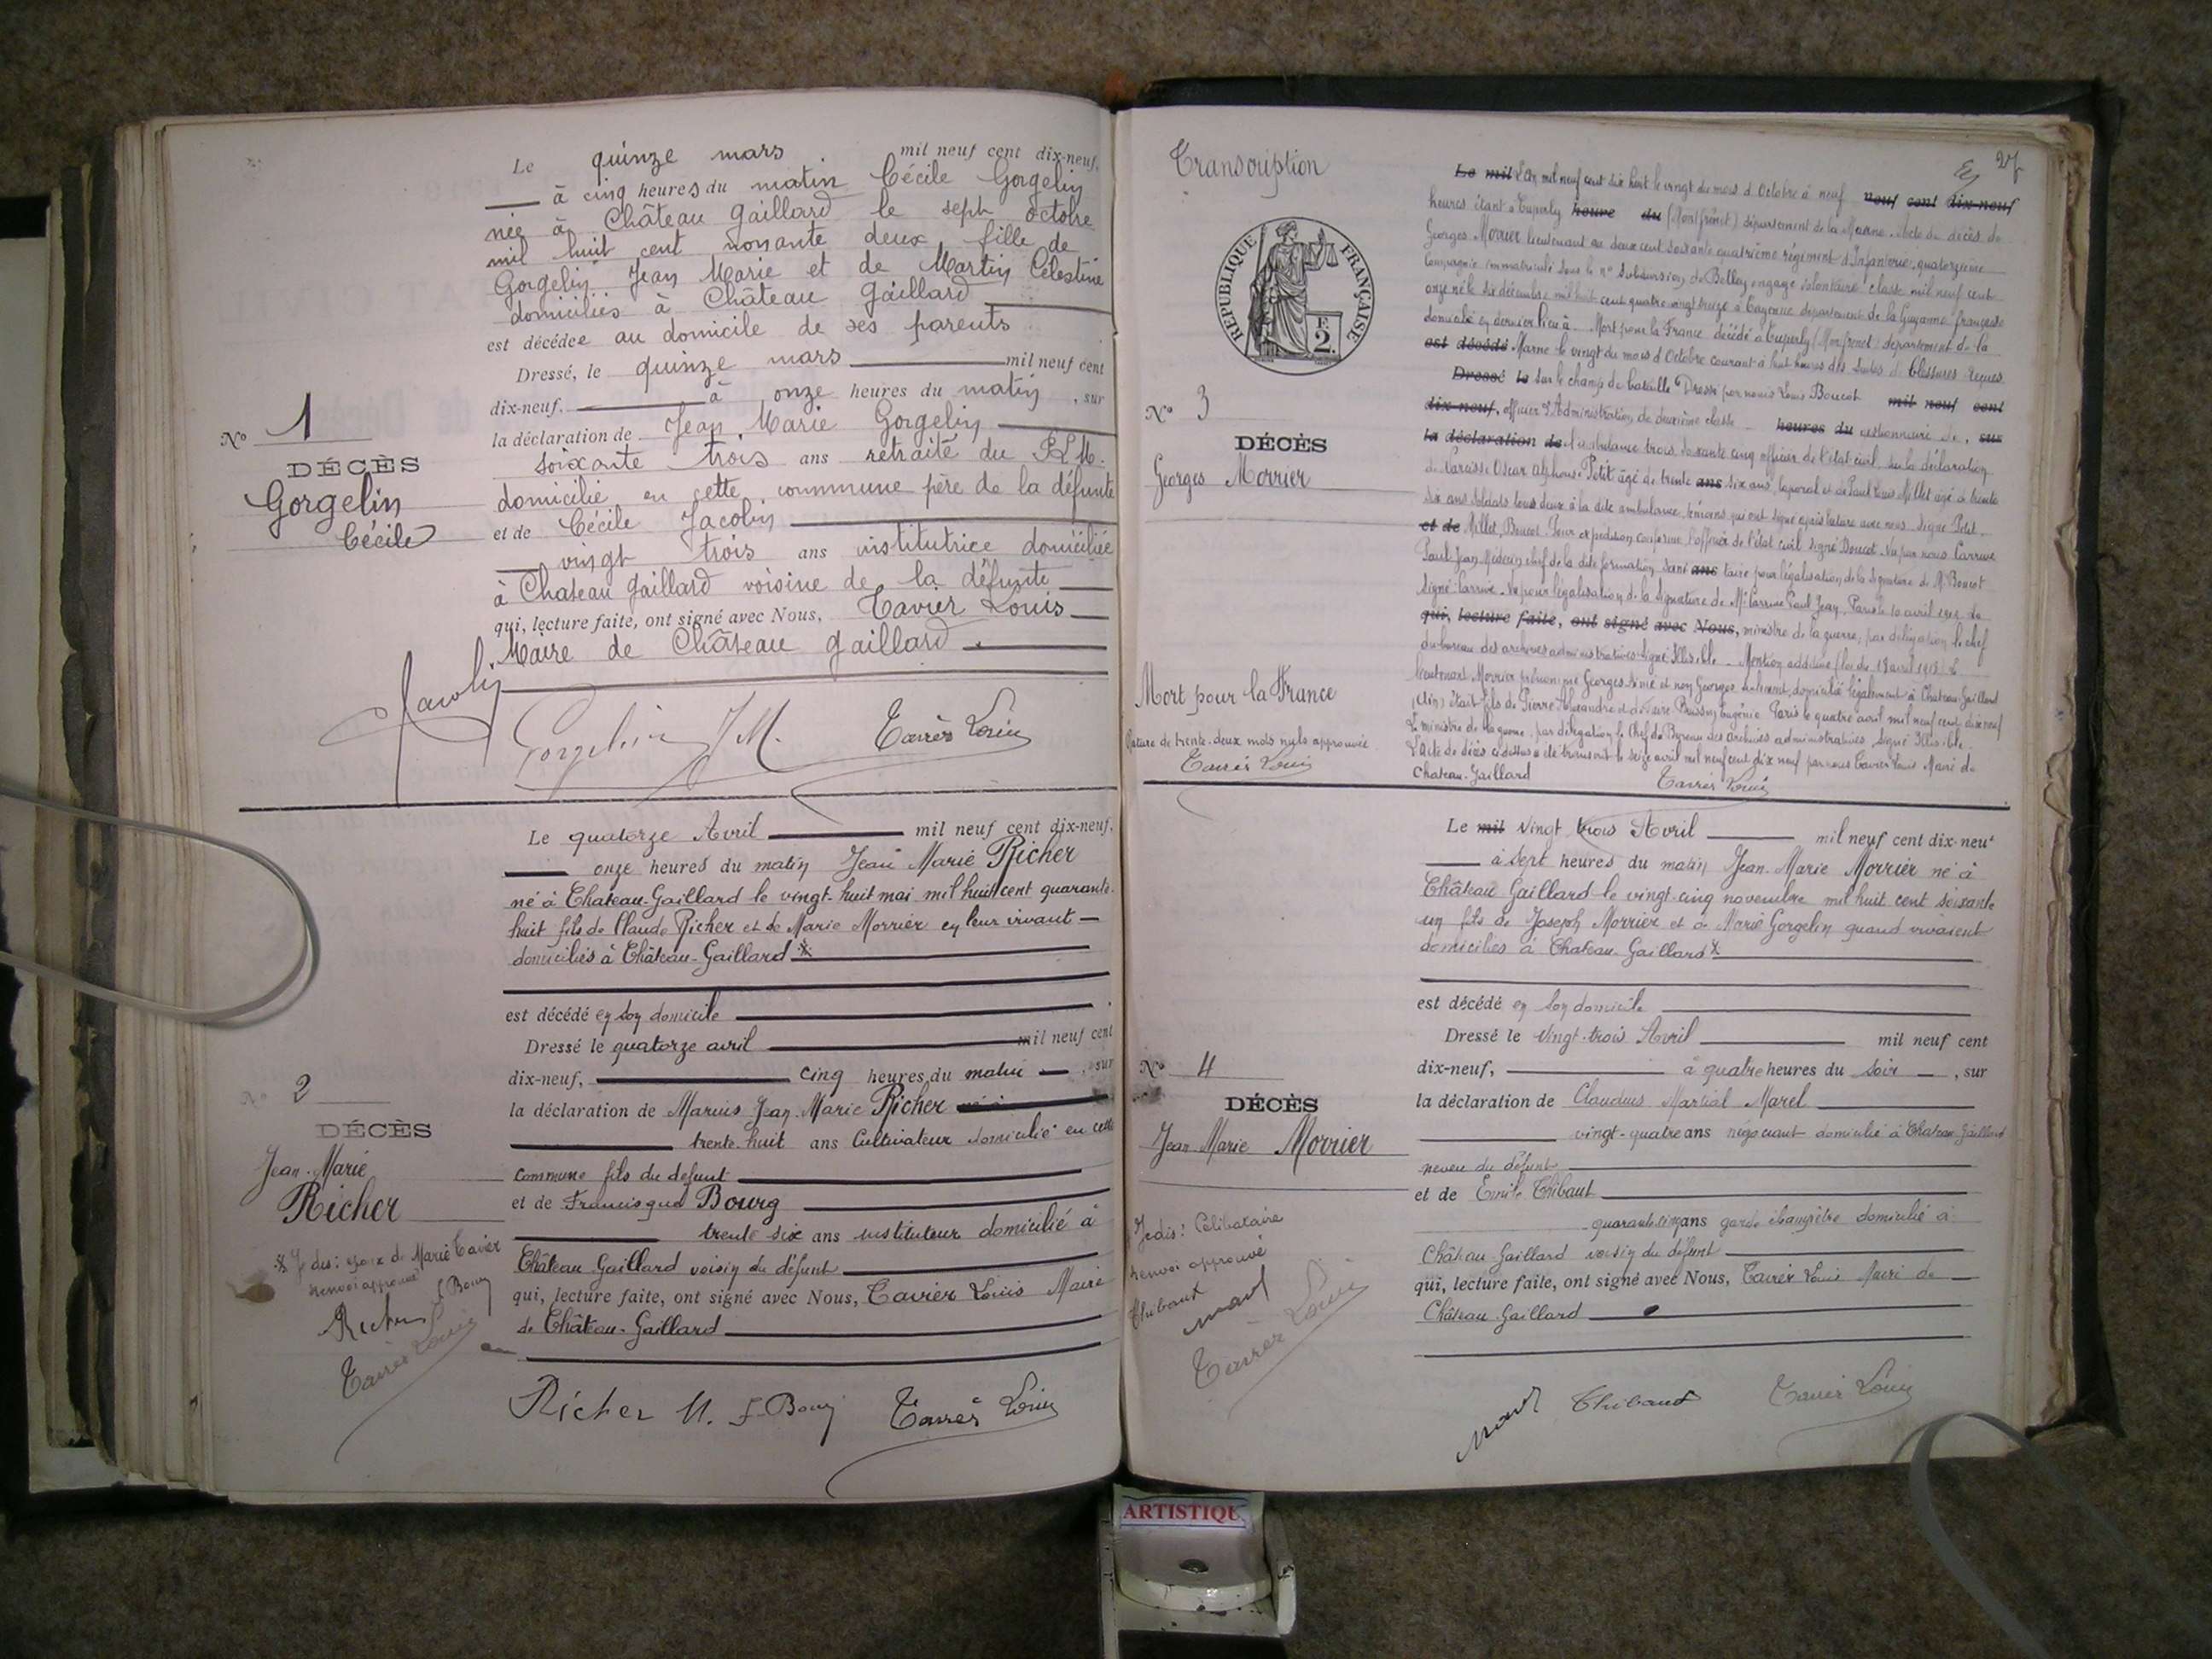 Le quinze mars mil neuf cent dix-neuf,
à cinq heures du matin Cécile Gorgelin
née à Château Gaillard le sept octobre
mil huit cent nonante deux fille de
Gorgelin Jean Marie et de Martin Célestine
domiciliés à Château Gaillard
est décédée au domicile de ses parents
Dressé, le quinze mars mil neuf cent
dix-neuf, à onze heures du matin, sur
la déclaration de Jean Marie Gorgelin
soixante trois ans retraité du P.L.M.
domicilié en cette commune père de la défunte
et de Cécile Jacolin
vingt trois ans institutrice domiciliée
à Chateau Gaillard voisine de la défunte
qui, lecture faite, ont signé avec Nous, Tavier Louis
Maire de Château Gaillard.
No 1
DÉCÈS
Gorgelin
Cécile
Jacolin Gorgelin J M. Tavier Louis
Le quatorze Avril mil neuf cent dix-neuf,
onze heures du matin Jean Marie Richer
né à Chateau-Gaillard le vingt-huit mai mil huit cent quarante-
huit fils de Claude Richer et de Marie Morrier en leur vivant
domiciliés à Château-Gaillard
est décédé en son domicile
Dressé le quatorze avril mil neuf cent
dix-neuf, cinq heures du matin, sur
la déclaration de Marius Jean-Marie Richer
trente-huit ans Cultivateur domicilié en cette
commune fils du défunt
et de Francisque Bourg
trente six ans instituteur domicilié à
Château Gaillard voisin du défunt
qui, lecture faite, ont signé avec Nous, Tavier Louis Maire
de Château-Gaillard
No 2
DÉCÈS
Jean-Marie
Richer
Je dis: époux de Marie Tavier
renvoi approuvé
F Bourg
Richer
Tavier Louis
Richer M. F. Bourg Tavier Louis
Transcription
27
RÉPUBLIQUE FRANÇAISE
F.
2.
No 3
DÉCÈS
Georges Morrier
Mort pour la France
Rature de trente-deux mots nuls approuvée
Tavier Louis
Le mil L'an mil neuf cent dix huit le vingt du mois d'Octobre à neuf neuf cent dix-neuf
heures étant à Cuperly heure du département de la Marne. Acte de décès de
Georges Morrier lieutenant au deux cent soixante quatrième régiment d'Infanterie, quatorzième
Compagnie immatriculé sous le no subdivision de Belley engagé volontaire classe mil neuf cent
onze né le six décembre mil huit cent quatre vingt treize à Cayenne département de la Guyanne française
domicilié en dernier lieu à Mort pour la France décédé à Cuperly département de la
est décédé Marne le vingt du mois d'Octobre courant à huit heures des suites de blessures reçues
Dressé le sur le champ de bataille Dressé par nous Louis Boucot mil neuf cent
dix-neuf, officier d'Administration de deuxième classe heures du gestionnaire de, sur
la déclaration de l'ambulance trois soixante cinq officier de l'état civil, sur la déclaration
de Narcisse Oscar Alphonse Petit âgé de trente ans six ans, caporal et de Paul Millet âgé de trente
six ans soldats tous deux à la dite ambulance, témoins qui ont signé après lecture avec nous. Signé Petit.
et de Millet, Boucot. Pour expédition conforme l'officier de l'état civil signé Boucot. Vu par nous Carrive
Paul Jean Médecin chef de la dite formation sani ans taire pour légalisation de la signature de M. Boucot
signé Carrive. Vu pour légalisation de la signature de Mr Carrive Paul Jean. Paris le 10 avril
qui, lecture faite, ont signé avec Nous, ministre de la guerre, par délégation le chef
du bureau des archives administratives signé Illisible. Mention
lieutenant Morrier prénommé Georges et non Georges seulement, domicilié légalement à Chateau-Gaillard
(Ain) était fils de Pierre Alexandre et de Eugénie. Paris le quatre avril mil neuf cent dix neuf
Le ministre de la guerre, par délégation le Chef du Bureau des Archives administratives, signé Illisible.
L'acte de décès ci-dessus a été transcrit le seize avril mil neuf cent dix neuf par nous Tavier Louis Maire de
Chateau-Gaillard Tavier Louis
Le mil vingt trois Avril mil neuf cent dix-neuf
à sept heures du matin Jean-Marie Morrier né à
Château Gaillard le vingt-cinq novembre mil huit cent soixante
un fils de Joseph Morrier et de Marie Gorgelin quand vivaient
domiciliés à Chateau-Gaillard
est décédé en son domicile
Dressé le vingt-trois Avril mil neuf cent
dix-neuf, à quatre heures du soir, sur
la déclaration de Claudius Martial Marel
vingt-quatre ans négociant domicilié à Chateau-Gaillard
neveu du défunt
et de Emile Thibaut
quarante cinq ans garde champêtre domicilié à
Château Gaillard voisin du défunt
qui, lecture faite, ont signé avec Nous, Tavier Louis Maire de
Château Gaillard
No 4
DÉCÈS
Jean Marie Morrier
Je dis: Célibataire
renvoi approuvé
Thibaut
Marel
Tavier Louis
Marel Thibaut Tavier Louis
ARTISTIQU